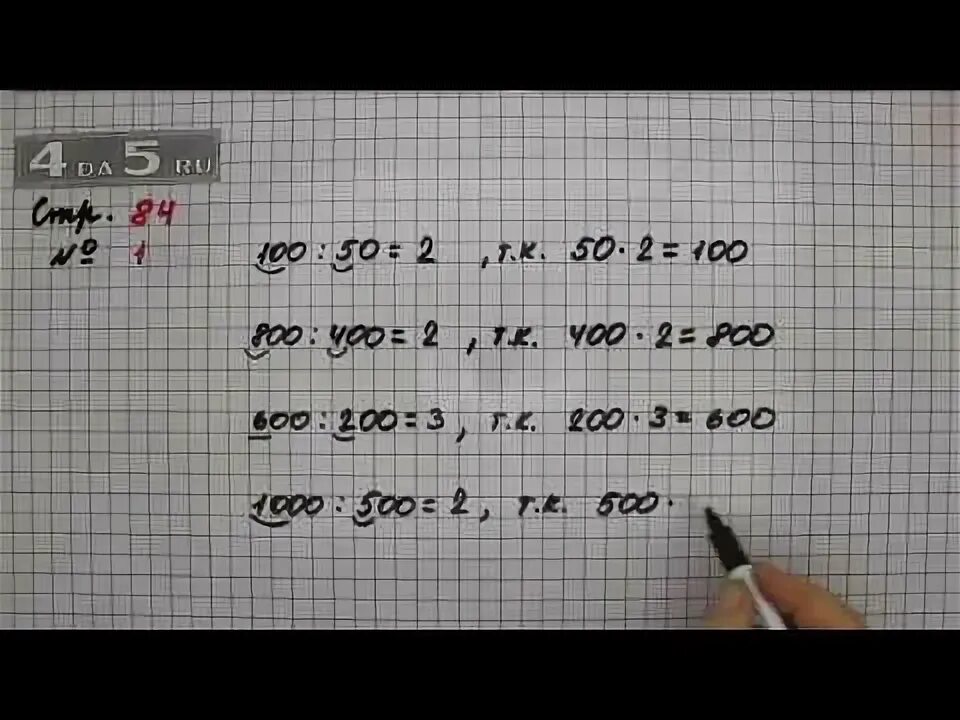 4 DA 5 RU
Стр. 84
№ 1
100 : 50 = 2 , т.к. 50 · 2 = 100
800 : 400 = 2 , т.к. 400 · 2 = 800
600 : 200 = 3 , т.к. 200 · 3 = 600
1000 : 500 = 2 , т.к. 500 ·